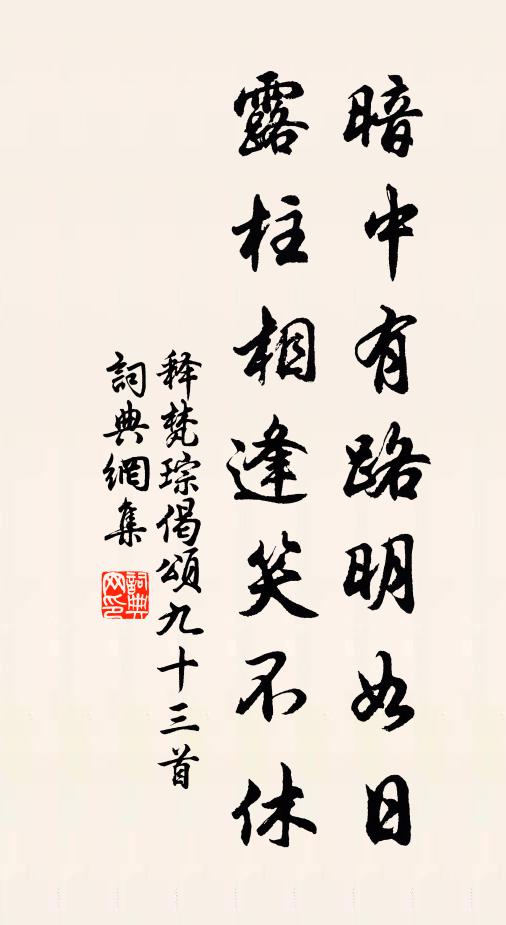 暗中有路明如日
露柱相逢笑不休
释梵琮偈頌九十三首
詞典網集
詞典网印